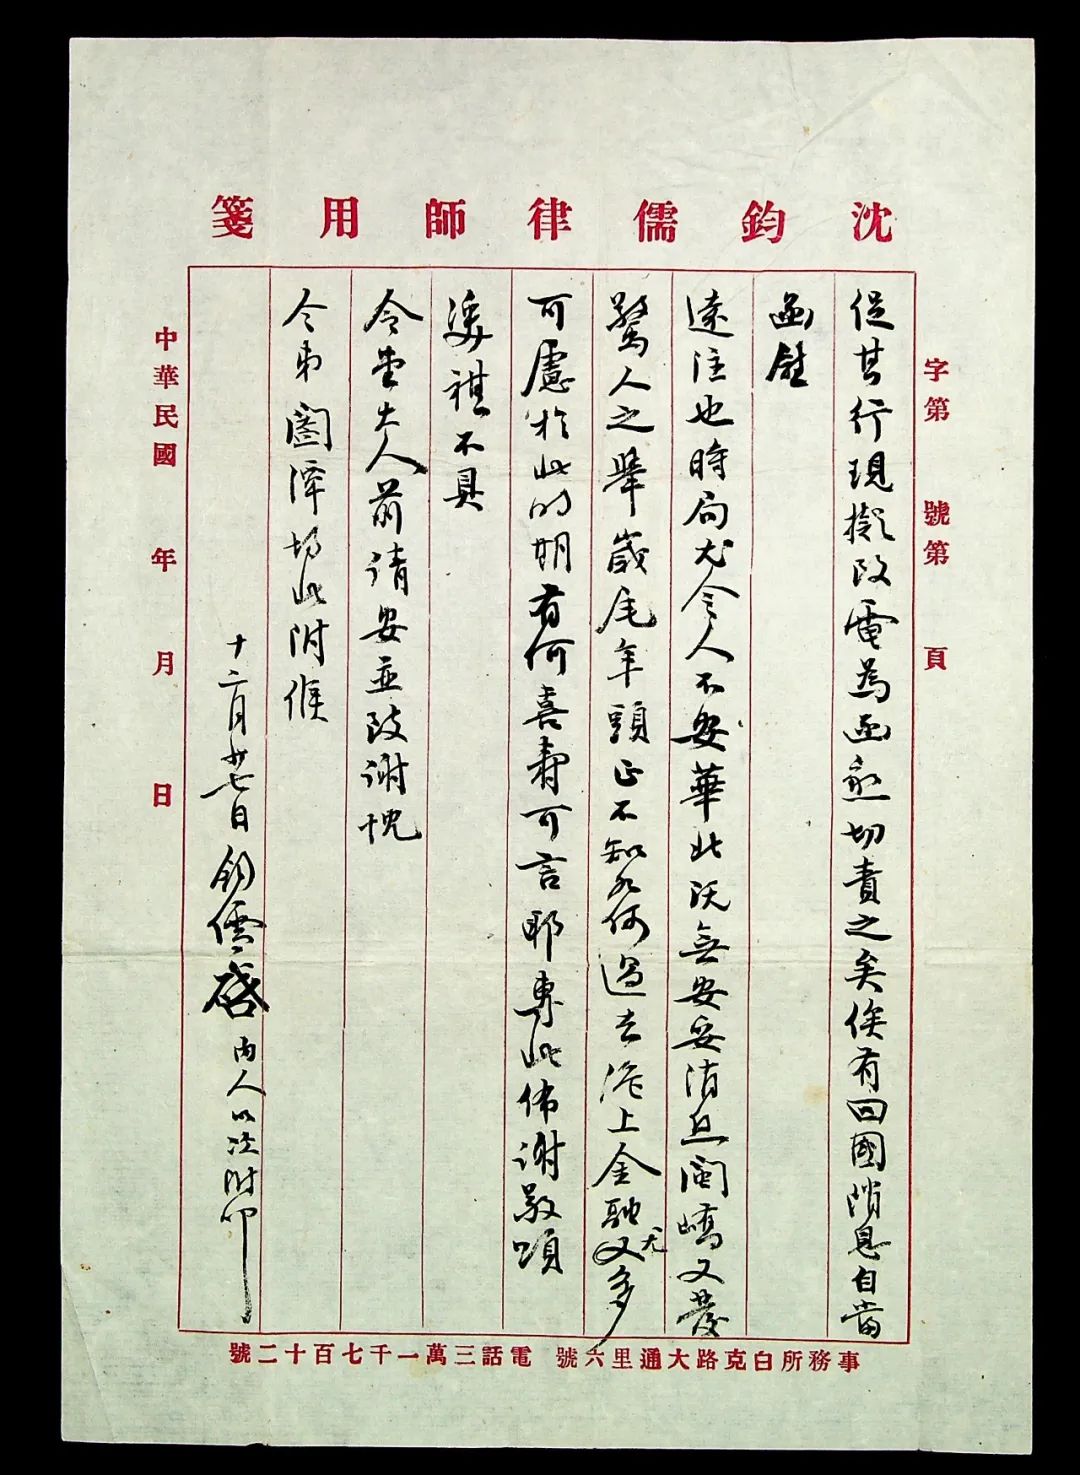 沈鈞儒律師用箋
字第　號第　頁
促其行現擬改電為函懇切責之矣俟有回國消息自當
函雖
遠注也時局尤令人不安華北既無安妥消息閩嶠又發
驚人之舉歲尾年頭正不知如何過去滬上金融又尤多
可慮於此時期有何喜壽可言耶專此佈謝敬頌
褀不具
令堂大人前請安並致謝忱
令弟閤潭均此附候
十二月廿七日 鈞儒啓 內人以次附叩
中華民國　年　月　日
事務所白克路大通里六號　電話三萬一千七百十二號